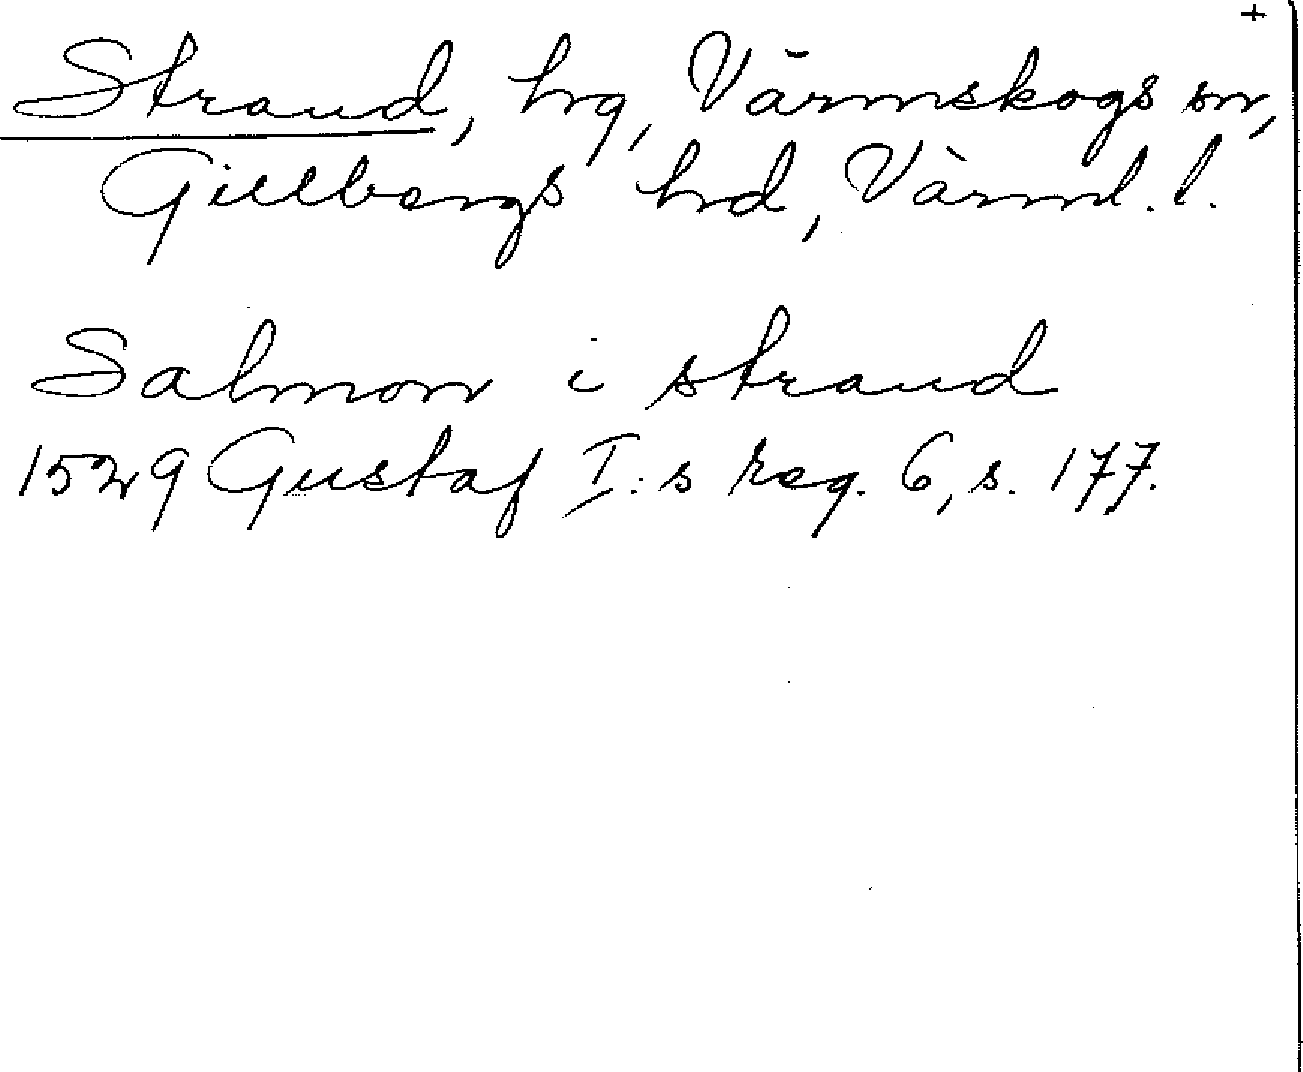 +
Strand, hg, Värmskogs sn,
Gillbergs hd, Värml. l.
Salmon i strand
1529 Gustaf I:s reg. 6, s. 177.